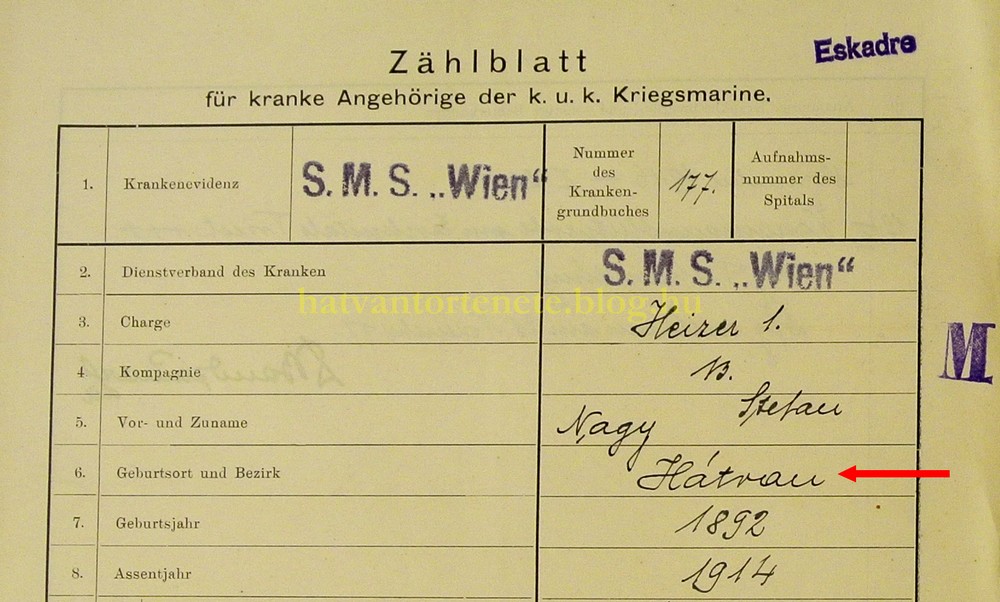 Eskadre
Zählblatt
für kranke Angehörige der k. u. k. Kriegsmarine.
1. Krankenevidenz S. M. S. „Wien“ Nummer des Kranken-grundbuches 177. Aufnahms-nummer des Spitals
2. Dienstverband des Kranken S. M. S. „Wien“
hatvantortenete.blog.hu
3. Charge Heizer 1.
M
4 Kompagnie 13.
5. Vor- und Zuname Nagy Stefan
6. Geburtsort und Bezirk Hátvan
7. Geburtsjahr 1892
8. Assentjahr 1914